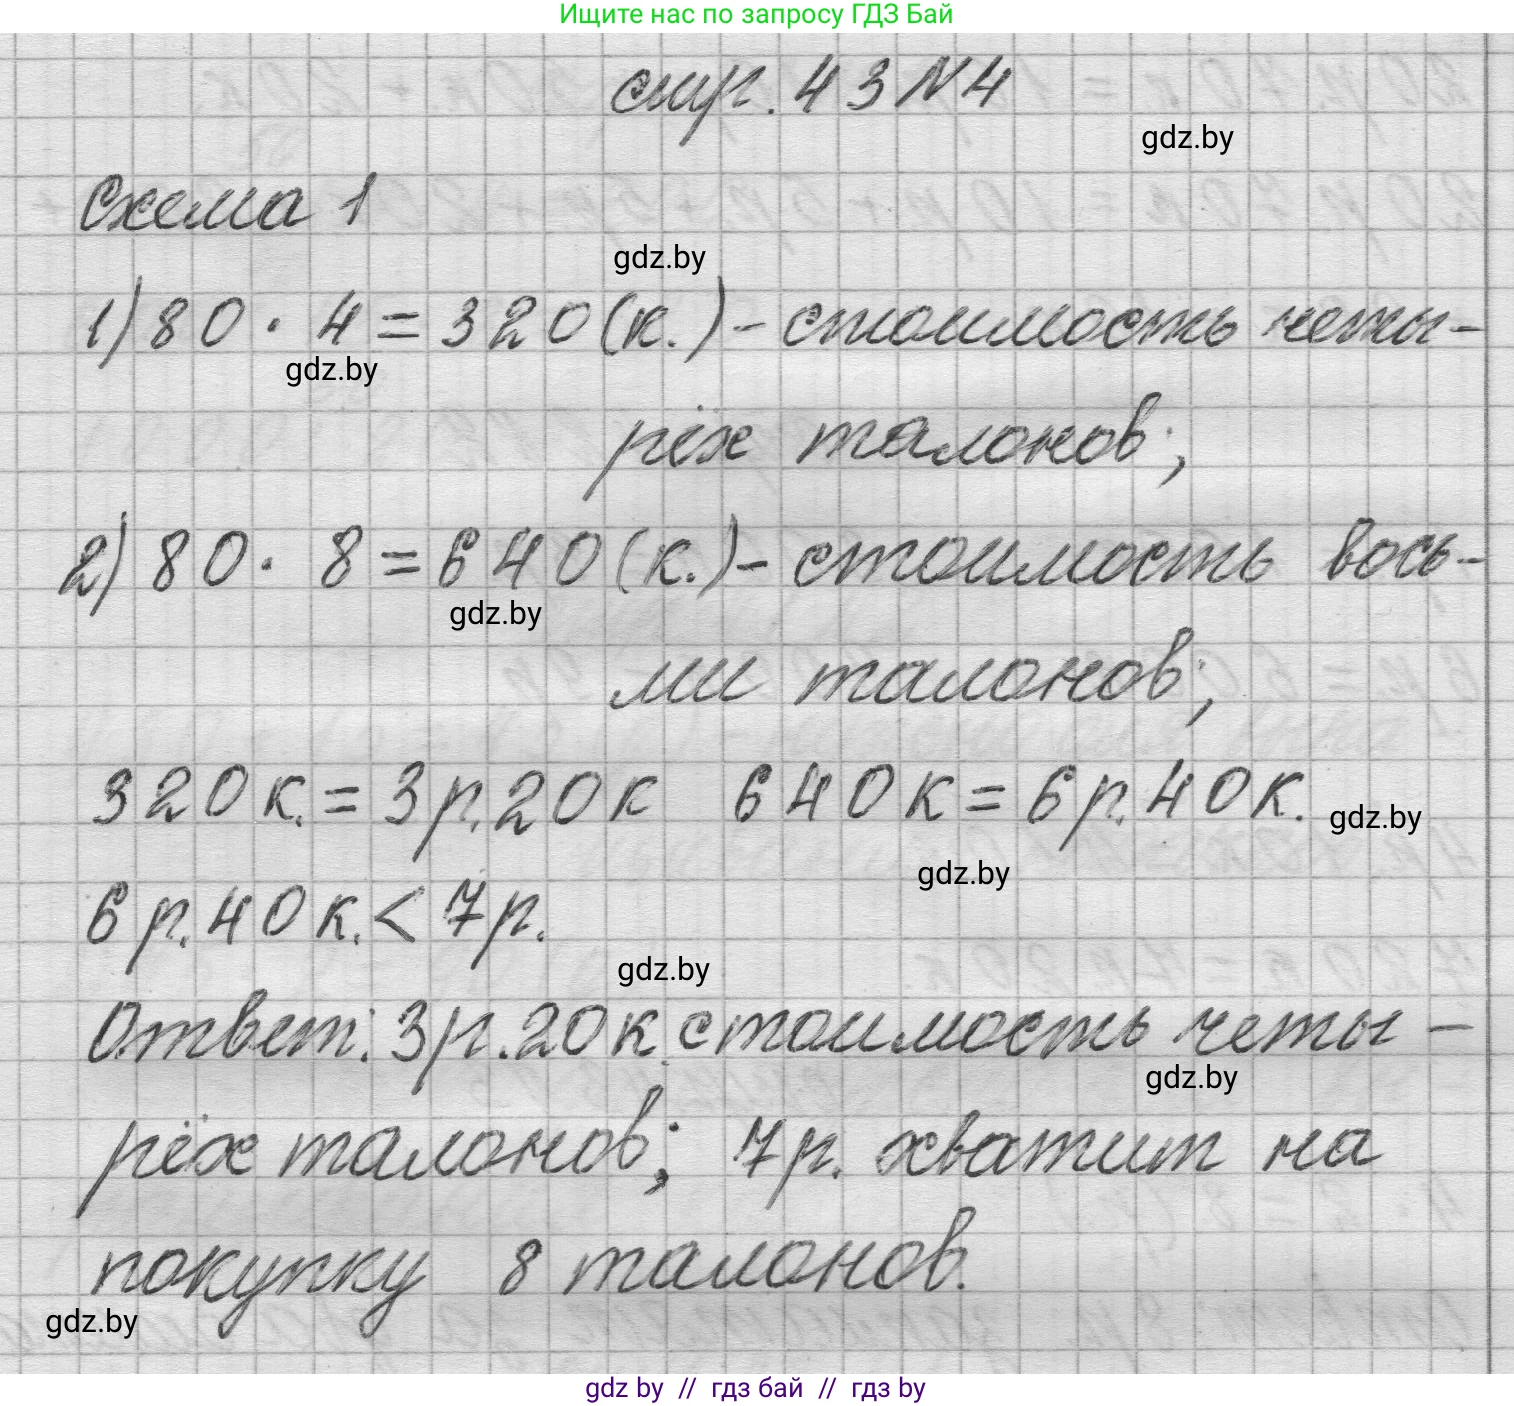 Ищите нас по запросу ГДЗ Бай
стр. 43 №4
gdz.by
Схема 1
gdz.by
1) 80 · 4 = 320 (к.) - стоимость четы-
gdz.by
рёх талонов;
2) 80 · 8 = 640 (к.) - стоимость вось-
gdz.by
ми талонов;
320 к. = 3 р. 20 к 640 к = 6 р. 40 к.
gdz.by
gdz.by
6 р. 40 к. < 7 р.
gdz.by
Ответ: 3 р. 20 к. стоимость четы-
gdz.by
рёх талонов; 7 р. хватит на
покупку 8 талонов.
gdz.by
gdz by // гдз бай // гдз by